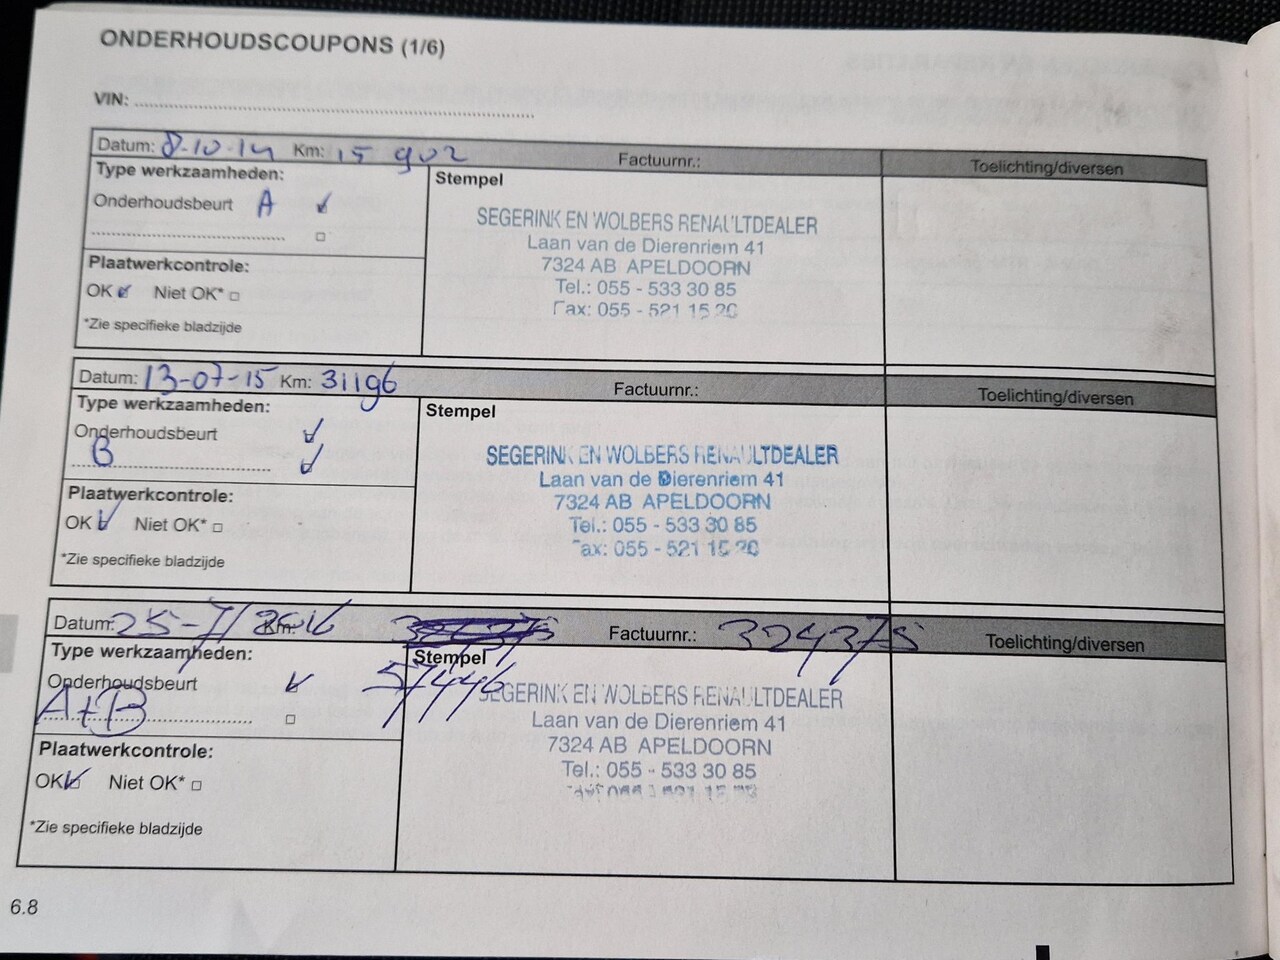 ONDERHOUDSCOUPONS (1/6)
VIN:
Datum: 8-10-14 Km: 15 902 Factuurnr.: Toelichting/diversen
Type werkzaamheden:
Stempel
Onderhoudsbeurt A
SEGERINK EN WOLBERS RENAULTDEALER
Laan van de Dierenriem 41
7324 AB APELDOORN
Tel.: 055 - 533 30 85
Fax: 055 - 521 15 20
Plaatwerkcontrole:
OK Niet OK*
*Zie specifieke bladzijde
Datum: 13-07-15 Km: 31196 Factuurnr.: Toelichting/diversen
Type werkzaamheden:
Stempel
Onderhoudsbeurt
B
SEGERINK EN WOLBERS RENAULTDEALER
Laan van de Dierenriem 41
7324 AB APELDOORN
Tel.: 055 - 533 30 85
Fax: 055 - 521 15 20
Plaatwerkcontrole:
OK Niet OK*
*Zie specifieke bladzijde
Datum: 25-7/2016 Km: Factuurnr.: 324375 Toelichting/diversen
Type werkzaamheden:
Stempel
57446
Onderhoudsbeurt
A+B
SEGERINK EN WOLBERS RENAULTDEALER
Laan van de Dierenriem 41
7324 AB APELDOORN
Tel.: 055 - 533 30 85
Plaatwerkcontrole:
OK Niet OK*
*Zie specifieke bladzijde
6.8